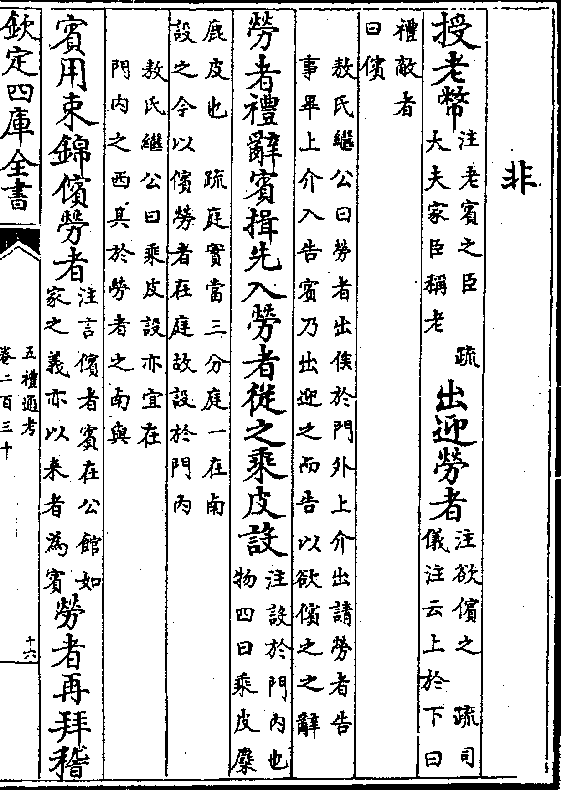 非
授老幣
注老賓之臣　疏
大夫家臣稱老
出迎勞者
注欲儐之　疏司
儀注云上於下曰
禮敵者
曰儐
敖氏繼公曰勞者出俟於門外上介出請勞者告
事畢上介入告賓乃出迎之而告以欲儐之之辭
勞者禮辭賓揖先入勞者從之乘皮設
注設於門内也
物四曰乘皮麋
鹿皮也　疏庭實當三分庭一在南
設之今以儐勞者在庭故設於門内
敖氏繼公曰乘皮設亦宜在
門内之西其於勞者之南與
賓用束錦儐勞者
注言儐者賓在公館如
家之義亦以來者為賓
勞者再拜稽
欽定四庫全書
五禮通考
卷二百三十
十六